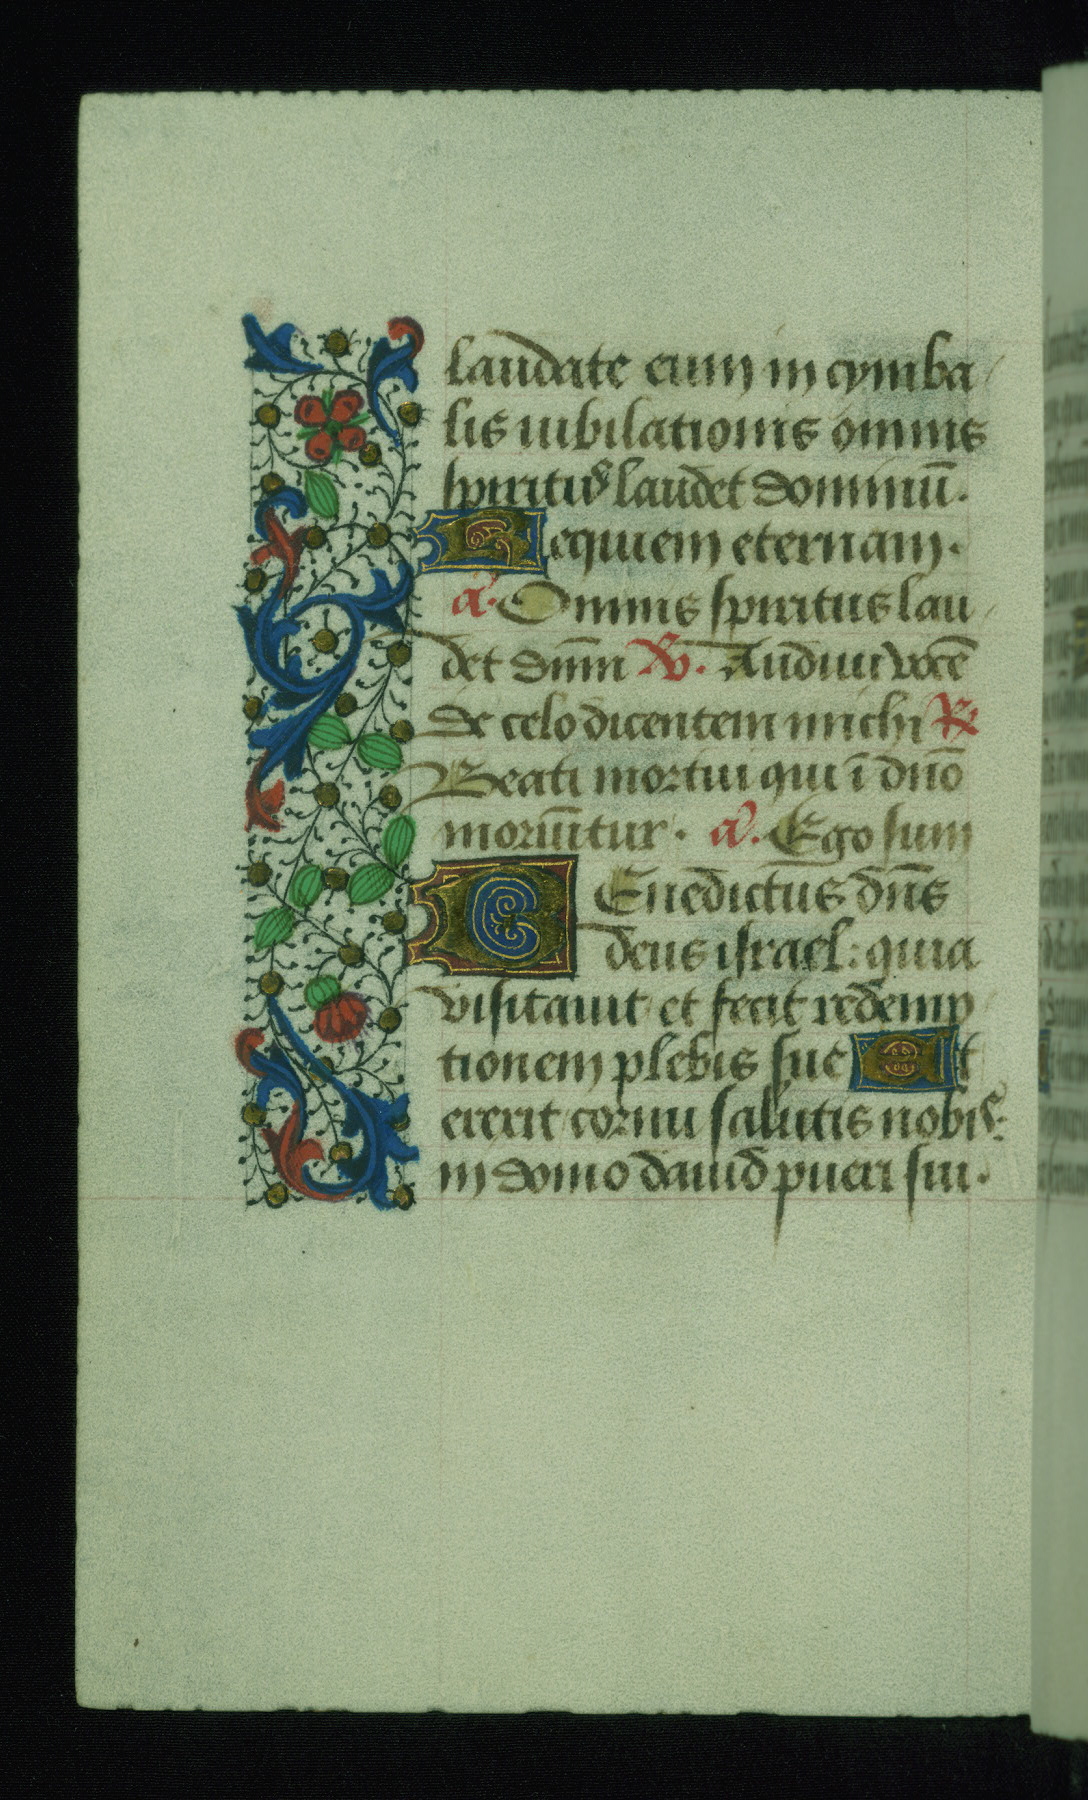 laudate eum in cymba
lis iubilationis omnis
spiritus laudet dominū.
Requiem eternam.
a. Omnis spiritus lau
det dn̄m V. Audiui vocē
de celo dicentem michi R
Beati mortui qui ī dn̄o
moriūtur. a. Ego sum
Benedictus dn̄s
deus israel: quia
visitauit et fecit redemp
tionem plebis sue Et
erexit cornu salutis nobis:
in domo dauid pueri sui.